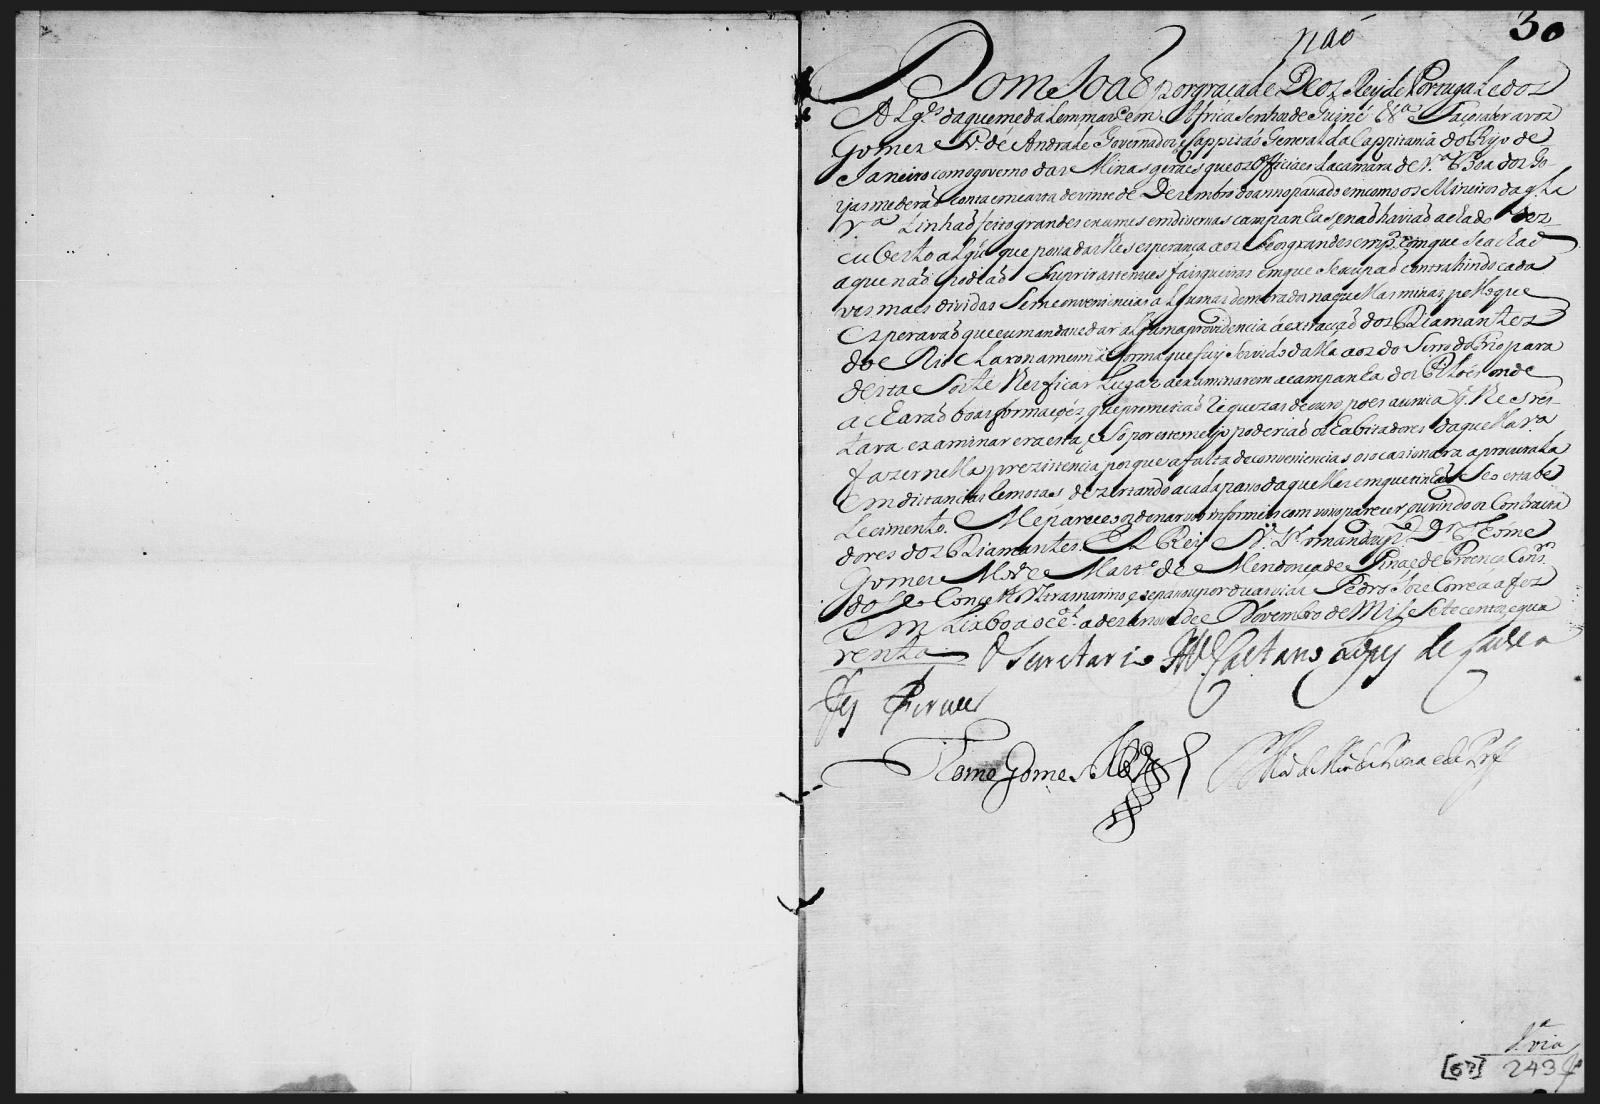 30
não
Dom João por graça de Deos Rey de Portugal e dos
Alg.es daquem e dalem, mar, em Africa Senhor de Guiné &.a Faço saber a vos
Gomes Fr.e de Andrade Governador e Cappitão General da Cappitania do Ryo de
Janeiro com o governo das Minas geraes que os Officiaes da camara de V.a Boa dos Go
yas me derão conta em carta de vinte de Dezembro do anno passado em como os Mineiros daq.lla
V.a tinhão feito grandes exames em diversas campanhas, e não havião achado dez
cuberto algũ que possa dar lhes esperança aos seos grandes emp.os em que se achão
a que não podião suprir as tenues faisqueiras em que se ocupão contrahindo cada
ves mais dividas sem conveniencias algumas de morados naquellas minas, pello que
esperavão que eu mandaçe dar alguma providencia á extracção dos Diamantes
do Rio Claro na mesma forma que fuy servido dalla aos do Serro do Frio para
desta sorte lhes ficar lugar a examinarem a campanha dos Pilões onde
acharão boas formações que premetião riquezas de ouro, pois a unica q. lhes res
tava examinar era esta, e só por este meyo poderião os habitadores daquella v.a
fazer nella prezistencia porque a falta de conveniencias os ocazionara a procurala
em distancias remotas dezertando a cada passo daquellas em que tinhão seo estabe
lecimento. Me pareceo ordenarvos informeis com vosso parecer, ouvindo os Contracta
dores dos Diamantes. El Rey N. Sr. o mandou p.los D.D. Thome
Gomes Mor.a e Mart.o de Mendonça de Pina e de Proença Cons.ros
do seo Cons.o Ultramarino, e se passou por duas vias Pedro Joze Correa a fez
em Lixboa occ.al a dezanove de Novembro de Mil e Setecentos, e qua
renta. O Secretario M.el Caetano Lopes de Lavre a
fez escrever
Thome Gomes Mor.a Mart.o de Mend.ça de Pina e de Pr.ca
1.a via
[67] 243